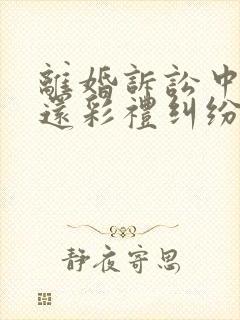 離婚訴訟中
還彩禮糾紛
靜夜寄思